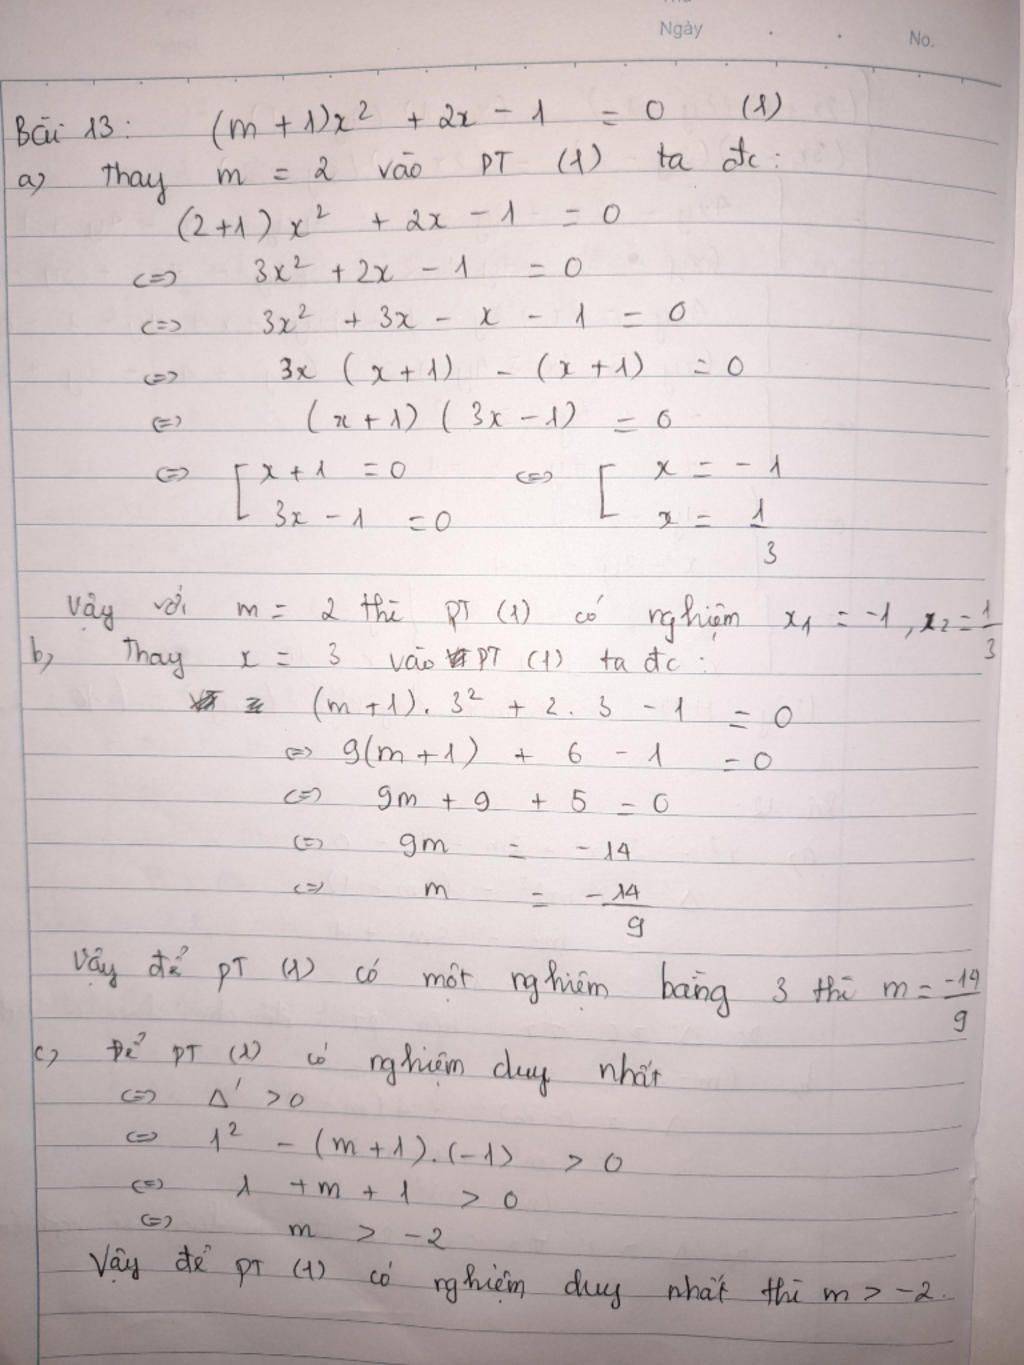 Ngày
No.
Bài 13: (m + 1)x² + 2x - 1 = 0 (1)
a) Thay m = 2 vào PT (1) ta đc:
(2+1) x² + 2x - 1 = 0
<=> 3x² + 2x - 1 = 0
<=> 3x² + 3x - x - 1 = 0
<=> 3x (x+1) - (x+1) = 0
<=> (x+1) (3x-1) = 0
<=> [ x+1 = 0 <=> [ x = -1
3x - 1 = 0 x = 1/3
Vậy với m = 2 thì PT (1) có nghiệm x₁ = -1, x₂ = 1/3
b) Thay x = 3 vào PT (1) ta đc:
(m+1). 3² + 2. 3 - 1 = 0
<=> 9(m+1) + 6 - 1 = 0
<=> 9m + 9 + 5 = 0
<=> 9m = -14
<=> m = -14/9
Vậy để PT (1) có một nghiệm bằng 3 thì m = -14/9
c) Để PT (1) có nghiệm duy nhất
<=> Δ' > 0
<=> 1² - (m+1).(-1) > 0
<=> 1 + m + 1 > 0
<=> m > -2
Vậy để PT (1) có nghiệm duy nhất thì m > -2.